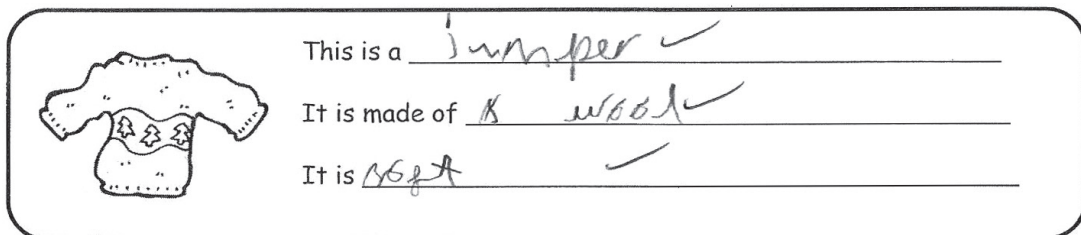 This is a jumper ✓
It is made of wool ✓
It is soft ✓